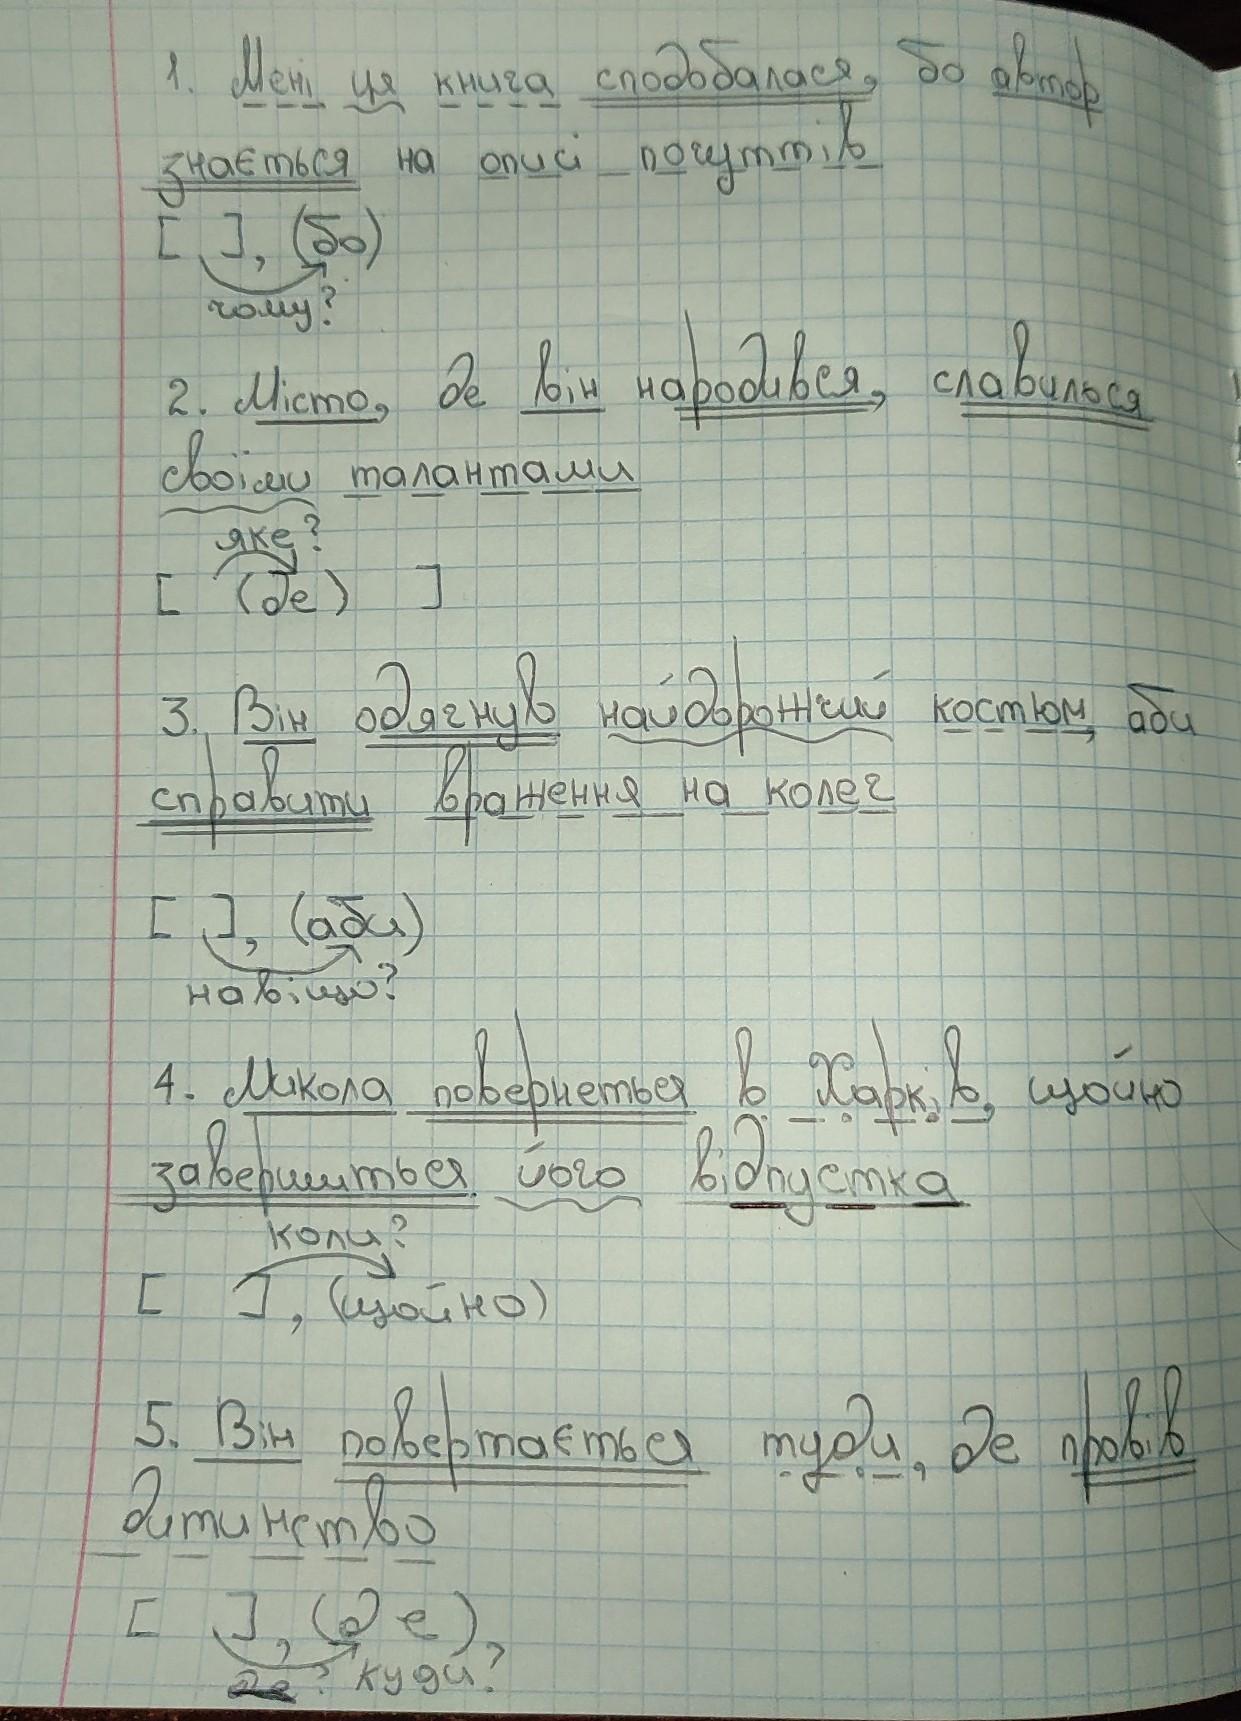 1. Мені ця книга сподобалася, бо автор
знається на описі почуттів
[ ], (бо)
чому?
2. Місто, де він народився, славилося
своїми талантами
яке?
[ (де) ]
3. Він одягнув найдорожчий костюм, аби
справити враження на колег
[ ], (аби)
навіщо?
4. Микола повернеться в Харків, щойно
завершиться його відпустка
коли?
[ ], (щойно)
5. Він повертається туди, де провів
дитинство
[ ], (де),
? куди?